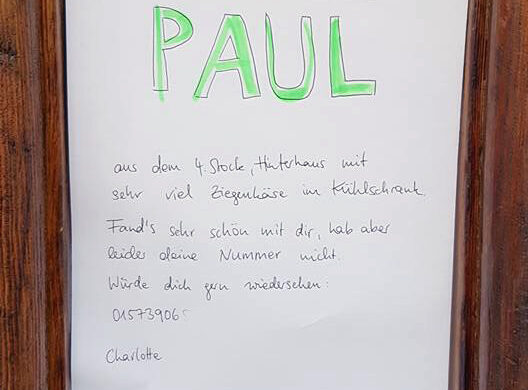 PAUL
aus dem 4. Stock, Hinterhaus mit
sehr viel Ziegenkäse im Kühlschrank.
Fand's sehr schön mit dir, hab aber
leider deine Nummer nicht.
Würde dich gern wiedersehen:
01573906
Charlotte